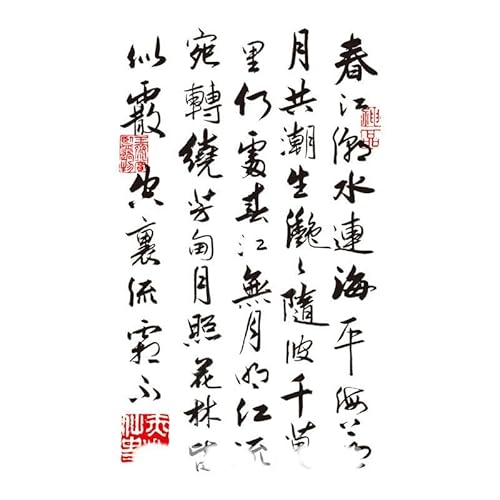 春江潮水連海平海上明
月共潮生灩〻隨波千萬
里何處春江無月明江流
宛轉繞芳甸月照花林皆
似霰空裏流霜不